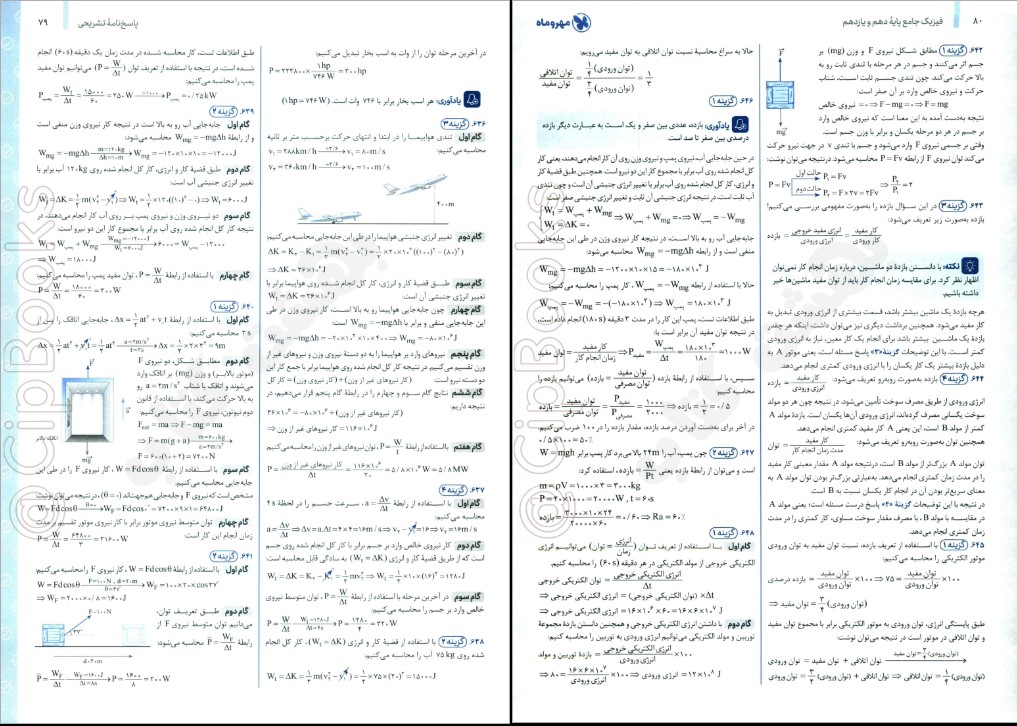 ۸۰
فیزیک جامع پایهٔ دهم و یازدهم
مهروماه
۶۴۲. گزینه ۱ مطابق شکل نیروی F و وزن (mg) بر
جسم اثر می‌کنند و جسم در هر مرحله با تندی ثابت رو به
بالا حرکت می‌کند. چون تندی جسم ثابت است، شتاب
حرکت و نیروی خالص وارد بر آن صفر است:
نیروی خالص = ۰ ⇒ F − mg = ۰ ⇒ F = mg
نتیجه به‌دست آمده به این معنا است که نیروی خالص وارد
بر جسم در هر دو مرحله یکسان و برابر با وزن جسم است.
وقتی بر جسمی نیروی F وارد می‌شود و جسم با تندی v در جهت نیرو حرکت
می‌کند توان نیروی F از رابطه P = Fv محاسبه می‌شود. درنتیجه می‌توان نوشت:
P = Fv
حالت اول P₁ = Fv
حالت دوم P₂ = F×۲v = ۲Fv
⇒ P₂/P₁ = ۲
F
mg
۶۴۳. گزینه ۳ در این سؤال بازده را به‌صورت مفهومی بررسی می‌کنیم!
بازده به‌صورت زیر تعریف می‌شود:
بازده = انرژی مفید خروجی / انرژی ورودی = کار مفید / کار ورودی
نکته: با دانستن بازدهٔ دو ماشین، درباره زمان انجام کار نمی‌توان
اظهار نظر کرد. برای مقایسه زمان انجام کار باید از توان مفید ماشین‌ها خبر
داشته باشیم.
هرچه بازدهٔ یک ماشین بیشتر باشد، قسمت بیشتری از انرژی ورودی تبدیل به
کار مفید می‌شود. همچنین برداشت دیگری نیز می‌توان داشت، اینکه هر چقدر
بازدهٔ یک ماشین بیشتر باشد برای انجام یک کار معین، نیاز به انرژی ورودی
کمتر است. با این توضیحات گزینهٔ «۳» پاسخ مسئله است، یعنی موتور A به
دلیل بازدهٔ بیشتر یک کار یکسان را با انرژی ورودی کمتری انجام می‌دهد.
۶۴۴. گزینه ۴ بازده به‌صورت روبه‌رو تعریف می‌شود: بازده = کار مفید / انرژی ورودی
انرژی ورودی از طریق مصرف سوخت تأمین می‌شود. در نتیجه چون هر دو مولد
سوخت یکسانی مصرف کرده‌اند، انرژی ورودی آن‌ها یکسان است. بازدهٔ مولد A
کمتر از مولد B است، این یعنی A کار مفید کمتری انجام می‌دهد.
همچنین توان به‌صورت روبه‌رو تعریف می‌شود: توان = کار مفید / مدت زمان انجام کار
توان مولد A بزرگ‌تر از مولد B است، درنتیجه مولد A مقدار معینی کار مفید
را در مدت زمان کمتری انجام می‌دهد. به‌عبارتی بزرگ‌تر بودن توان مولد A به
معنای سریع‌تر بودن آن در انجام کار یکسان نسبت به B است.
در نتیجه با این توضیحات گزینهٔ «۴» پاسخ درست مسئله است؛ یعنی مولد A
در مقایسه با مولد B، با مصرف مقدار سوخت مساوی، کار کمتری را در مدت
زمان کمتری انجام می‌دهد.
۶۴۵. گزینه ۱ با استفاده از تعریف بازده، نسبت توان مفید به توان ورودی
موتور الکتریکی را محاسبه می‌کنیم:
بازده درصدی = توان مفید / توان ورودی ×۱۰۰ ⇒ ۷۵ = توان مفید / توان ورودی ×۱۰۰
⇒ توان مفید = ۳/۴ (توان ورودی)
طبق پایستگی انرژی، توان ورودی به موتور برابر با مجموع توان مفید
و توان اتلافی در موتور است در نتیجه می‌توان نوشت:
توان ورودی = توان مفید + توان اتلافی توان مفید = ۳/۴ (توان ورودی)
توان ورودی = ۳/۴ (توان ورودی) + توان اتلافی ⇒ توان اتلافی = ۱/۴ (توان ورودی)
حالا به سراغ محاسبهٔ نسبت توان اتلافی به توان مفید می‌رویم:
توان اتلافی / توان مفید = ۱/۴ (توان ورودی) / ۳/۴ (توان ورودی) = ۱/۳
۶۴۶. گزینه ۱
یادآوری: بازده، عددی بین صفر و یک است به عبارت دیگر بازده
درصدی بین صفر تا صد است.
در حین جابه‌جایی آب، نیروی پمپ و نیروی وزن روی آن کار انجام می‌دهند، یعنی کار
کل انجام شده روی آب برابر با مجموع کار این دو نیرو است؛ همچنین طبق قضیهٔ کار
و انرژی، کار کل انجام شده روی آب برابر با تغییر انرژی جنبشی آن است و چون تندی
آب ثابت است، در نتیجه انرژی جنبشی آن ثابت و تغییر انرژی جنبشی صفر است.
Wₜ = Wپمپ + Wmg
Wₜ = ΔK = ۰
⇒ Wپمپ + Wmg = ۰ ⇒ Wپمپ = −Wmg
جابه‌جایی آب رو به بالا است، در نتیجه کار نیروی وزن در طی این جابه‌جایی
منفی است و از رابطه Wmg = −mgΔh محاسبه می‌شود:
Wmg = −mgΔh = −۱۲۰۰×۱۰×۱۵ = −۱۸۰×۱۰³ J
حالا با استفاده از رابطه Wپمپ = −Wmg، کار پمپ را محاسبه می‌کنیم:
Wپمپ = −Wmg = −(−۱۸۰×۱۰³) ⇒ Wپمپ = ۱۸۰×۱۰³ J
طبق اطلاعات تست، پمپ این کار را در مدت ۳ دقیقه (۱۸۰s) انجام داده است،
در نتیجه توان مفید آن برابر است با:
توان مفید = کار مفید / زمان انجام کار ⇒ Pمفید = Wپمپ/Δt = ۱۸۰×۱۰³/۱۸۰ = ۱۰۰۰W
سپس، با استفاده از رابطهٔ بازده (بازده = توان مفید / توان مصرفی) می‌توانیم بازده را
محاسبه کنیم:
بازده = توان مفید / توان مصرفی = Pمفید / Pمصرفی = ۱۰۰۰/۲۰۰۰ ⇒ بازده = ۱/۲ = ۰/۵
در آخر برای به‌دست آوردن درصد بازده، مقدار بازده را در ۱۰۰ ضرب می‌کنیم:
۰/۵×۱۰۰ = ۵۰٪
۶۴۷. گزینه ۲ چون پمپ، آب را ۲۴m بالا می‌برد کار پمپ، برابر W = mgh
است و می‌توان از رابطهٔ بازده یعنی بازده = W/Pt استفاده کرد:
m = ρV = ۱۰۰۰×۳ = ۳۰۰۰kg
P = ۲۰×۱۰۰۰ = ۲۰۰۰۰W , t = ۶۰s
بازده = ۳۰۰۰×۱۰×۲۴ / ۲۰۰۰۰×۶۰ = ۰/۶۰ ⇒ Ra = ۶۰٪
۶۴۸. گزینه ۱
گام اول با استفاده از تعریف توان (توان = انرژی / زمان) می‌توانیم انرژی
الکتریکی خروجی از مولد الکتریکی در هر دقیقه (۶۰s) را محاسبه کنیم.
توان الکتریکی خروجی = انرژی الکتریکی خروجی / Δt
⇒ انرژی الکتریکی خروجی = (توان الکتریکی خروجی)×Δt
⇒ انرژی الکتریکی خروجی = ۱۶×۱۰⁶×۶۰ = ۱۶×۶×۱۰⁷ J
گام دوم با داشتن انرژی الکتریکی خروجی و همچنین دانستن بازدهٔ مجموعهٔ
توربین و مولد الکتریکی می‌توانیم انرژی ورودی به توربین را محاسبه کنیم:
بازدهٔ توربین و مولد = انرژی الکتریکی خروجی / انرژی ورودی ×۱۰۰
⇒ ۸۰ = ۱۶×۶×۱۰⁷ / انرژی ورودی ×۱۰۰ ⇒ انرژی ورودی = ۱۲×۱۰⁸ J
پاسخ‌نامهٔ تشریحی
۷۹
در آخرین مرحله توان را از وات به اسب بخار تبدیل می‌کنیم:
P = ۲۲۳۸۰۰× ۱hp/۷۴۶W = ۳۰۰hp
یادآوری: هر اسب بخار برابر با ۷۴۶ وات است. (۱hp = ۷۴۶W)
۶۳۶. گزینه ۳
گام اول تندی هواپیما را در ابتدا و انتهای حرکت برحسب متر بر ثانیه
محاسبه می‌کنیم:
v₁ = ۲۸۸km/h ÷۳/۶ → v₁ = ۸۰m/s
v₂ = ۳۶۰km/h ÷۳/۶ → v₂ = ۱۰۰m/s
۴۰۰m
گام دوم تغییر انرژی جنبشی هواپیما را در طی این جابه‌جایی محاسبه می‌کنیم:
ΔK = K₂ − K₁ = ۱/۲ m(v₂² − v₁²) = ۱/۲×۲×۱۰⁴((۱۰۰)² − (۸۰)²)
⇒ ΔK = ۳۶×۱۰⁶ J
گام سوم طبق قضیهٔ کار و انرژی، کار کل انجام شده روی هواپیما برابر با
تغییر انرژی جنبشی آن است: Wₜ = ΔK = ۳۶×۱۰⁶ J
گام چهارم چون جابه‌جایی هواپیما رو به بالا است، کار نیروی وزن در طی
این جابه‌جایی منفی و برابر با Wmg = −mgΔh است:
Wmg = −mgΔh = −۲×۱۰⁴×۱۰×۴۰۰ ⇒ Wmg = −۸۰×۱۰⁶ J
گام پنجم نیروهای وارد بر هواپیما را به دو دستهٔ نیروی وزن و نیروهای غیر از
وزن تقسیم می‌کنیم. در نتیجه کار کل انجام شده روی هواپیما برابر با جمع کار این
دو دسته نیرو است: کار کل = (کار نیروی وزن) + (کار نیروهای غیر از وزن)
گام ششم نتایج گام سوم و چهارم را در رابطهٔ گام پنجم قرار می‌دهیم، در
نتیجه داریم: ۳۶×۱۰⁶ = −۸۰×۱۰⁶ + (کار نیروهای غیر از وزن)
⇒ کار نیروهای غیر از وزن = ۱۱۶×۱۰⁶ J
گام هفتم بااستفاده از رابطهٔ P = W/t توان نیروهای غیر از وزن را محاسبه می‌کنیم:
P = کار نیروهای غیر از وزن / Δt = ۱۱۶×۱۰⁶/۲۰ = ۵/۸×۱۰⁶W = ۵/۸MW
۶۳۷. گزینه ۴
گام اول با استفاده از رابطهٔ a = Δv/Δt، سرعت جسم را در لحظهٔ ۴s
محاسبه می‌کنیم:
a = Δv/Δt ⇒ Δv = a.Δt = ۴×۴ = ۱۶m/s ⇒ v₂ − v₁ = ۱۶ ⇒ v₂ = ۱۶m/s
گام دوم کار نیروی خالص وارد بر جسم برابر با کار کل انجام شده روی جسم
است که از طریق قضیهٔ کار و انرژی (Wₜ = ΔK) به سادگی قابل محاسبه است:
Wₜ = ΔK = K₂ − K₁ = ۱/۲ mv₂² ⇒ Wₜ = ۱/۲×۱۰×(۱۶)² = ۱۲۸۰J
گام سوم در آخرین مرحله با استفاده از رابطهٔ P = W/Δt، توان متوسط نیروی
خالص وارد بر جسم را محاسبه می‌کنیم:
P = W/Δt → P = ۱۲۸۰/۴ = ۳۲۰W
۶۳۸. گزینه ۲ با استفاده از قضیهٔ کار و انرژی (Wₜ = ΔK)، کار کل انجام
شده روی ۷۵kg آب را محاسبه می‌کنیم:
Wₜ = ΔK = ۱/۲ m(v₂² − v₁²) = ۱/۲×۷۵×(۲۰)² = ۱۵۰۰۰J
طبق اطلاعات تست، کار محاسبه شده در مدت زمان یک دقیقه (۶۰s) انجام
شده است، در نتیجه با استفاده از تعریف توان (P = W/Δt) می‌توانیم توان مفید
پمپ را محاسبه کنیم:
Pپمپ = Wₜ/Δt = ۱۵۰۰۰/۶۰ = ۲۵۰W ÷۱۰۰۰ → Pپمپ = ۰/۲۵kW
۶۳۹. گزینه ۲
گام اول جابه‌جایی آب رو به بالا است در نتیجه کار نیروی وزن منفی است
و از رابطهٔ Wmg = −mgΔh محاسبه می‌شود:
Wmg = −mgΔh m=۱۲۰kg Δh=۱۰m → Wmg = −۱۲۰×۱۰×۱۰ = −۱۲۰۰۰J
گام دوم طبق قضیهٔ کار و انرژی، کار کل انجام شده روی ۱۲۰kg آب برابر با
تغییر انرژی جنبشی آب است:
Wₜ = ΔK = ۱/۲ m(v₂² − v₁²) ⇒ Wₜ = ۱/۲×۱۲۰((۱۰)² − ۰) ⇒ Wₜ = ۶۰۰۰J
گام سوم دو نیروی وزن و نیروی پمپ بر روی آب کار انجام می‌دهند، در
نتیجه کار کل انجام شده روی آب برابر با مجموع کار این دو نیرو است:
Wₜ = Wپمپ + Wmg Wmg=−۱۲۰۰۰J Wₜ=۶۰۰۰J → ۶۰۰۰ = Wپمپ − ۱۲۰۰۰
⇒ Wپمپ = ۱۸۰۰۰J
گام چهارم با استفاده از رابطهٔ P = W/Δt، توان مفید پمپ را محاسبه می‌کنیم:
P = Wپمپ/Δt = ۱۸۰۰۰/۶۰ = ۳۰۰W
۶۴۰. گزینه ۱
گام اول با استفاده از رابطهٔ Δx = ۱/۲ at² + v₁t، جابه‌جایی اتاقک را پس از
۳s محاسبه می‌کنیم:
Δx = ۱/۲ at² + v₁t = ۱/۲ at² a=۲m/s² t=۳s → Δx = ۱/۲×۲×۳² = ۹m
گام دوم مطابق شکل، دو نیروی F
(موتور بالابر) و وزن (mg) بر اتاقک وارد
می‌شوند و اتاقک با شتاب a = ۲m/s² رو
به بالا حرکت می‌کند، با استفاده از قانون
دوم نیوتون، نیروی F را محاسبه می‌کنیم:
Fnet = ma ⇒ F − mg = ma
⇒ F = m(g + a) m=۶۰۰kg a=۲m/s² →
F = ۶۰۰(۱۰ + ۲) = ۷۲۰۰N
F
اتاقک بالابر
mg
گام سوم با استفاده از رابطهٔ W = Fdcosθ، کار نیروی F را در طی این
جابه‌جایی محاسبه می‌کنیم.
مشخص است که نیروی F و جابه‌جایی هم‌جهت‌اند (θ = ۰)، در نتیجه می‌توان نوشت:
W = Fdcosθ θ=۰ → WF = Fdcos۰° = ۷۲۰۰×۹×۱ = ۶۴۸۰۰J
گام چهارم توان متوسط نیروی موتور برابر با کار نیروی موتور تقسیم بر مدت
زمان انجام این کار است:
P = W/Δt = ۶۴۸۰۰/۳ = ۲۱۶۰۰W
۶۴۱. گزینه ۲
گام اول با استفاده از رابطهٔ W = Fdcosθ، کار نیروی F را محاسبه می‌کنیم:
W = Fdcosθ F=۱۰۰N , d=۲۰m θ=۳۷° → WF = ۱۰۰×۲۰×cos۳۷°
⇒ WF = ۲۰۰۰×۰/۸ = ۱۶۰۰J
گام دوم طبق تعریف توان،
می‌دانیم توان متوسط نیروی F از
رابطهٔ P̄ = WF/Δt محاسبه می‌شود:
F=۱۰۰N
۳۷°
d=۲۰m
P̄ = WF/Δt WF=۱۶۰۰J Δt=۸s → P = ۱۶۰۰/۸ = ۲۰۰W
@CipBooks
@CipBooks